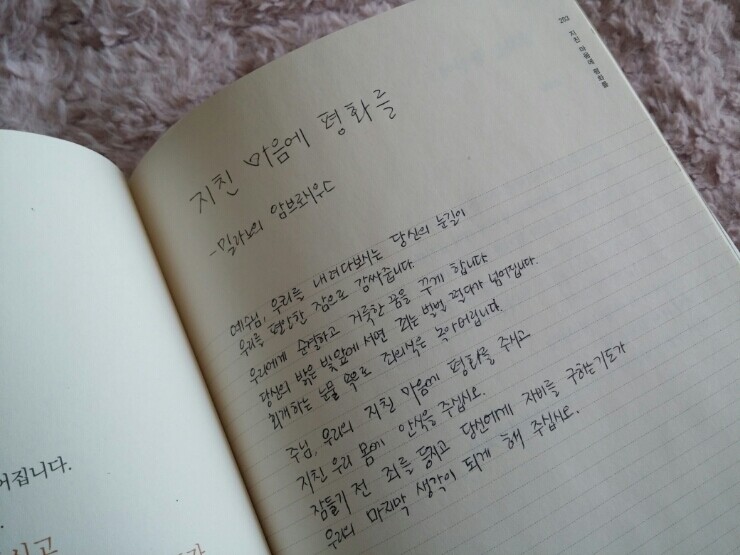 어집니다.
시고
203 지친 마음에 평화를
지친 마음에 평화를
-밀라노의 암브로시우스
예수님, 우리를 내려다보시는 당신의 눈길이
우리를 편안한 잠으로 감싸줍니다.
우리에게 순결하고 거룩한 꿈을 꾸게 합니다.
당신의 밝은 빛 앞에 서면 죄는 번번 걷다가 넘어집니다.
회개하는 눈물 속으로 죄의식은 녹아버립니다.
주님, 우리의 지친 마음에 평화를 주시고
지친 우리 몸에 안식을 주십시오.
잠들기 전 죄를 등지고 당신에게 자비를 구하는 기도가
우리의 마지막 생각이 되게 해 주십시오.